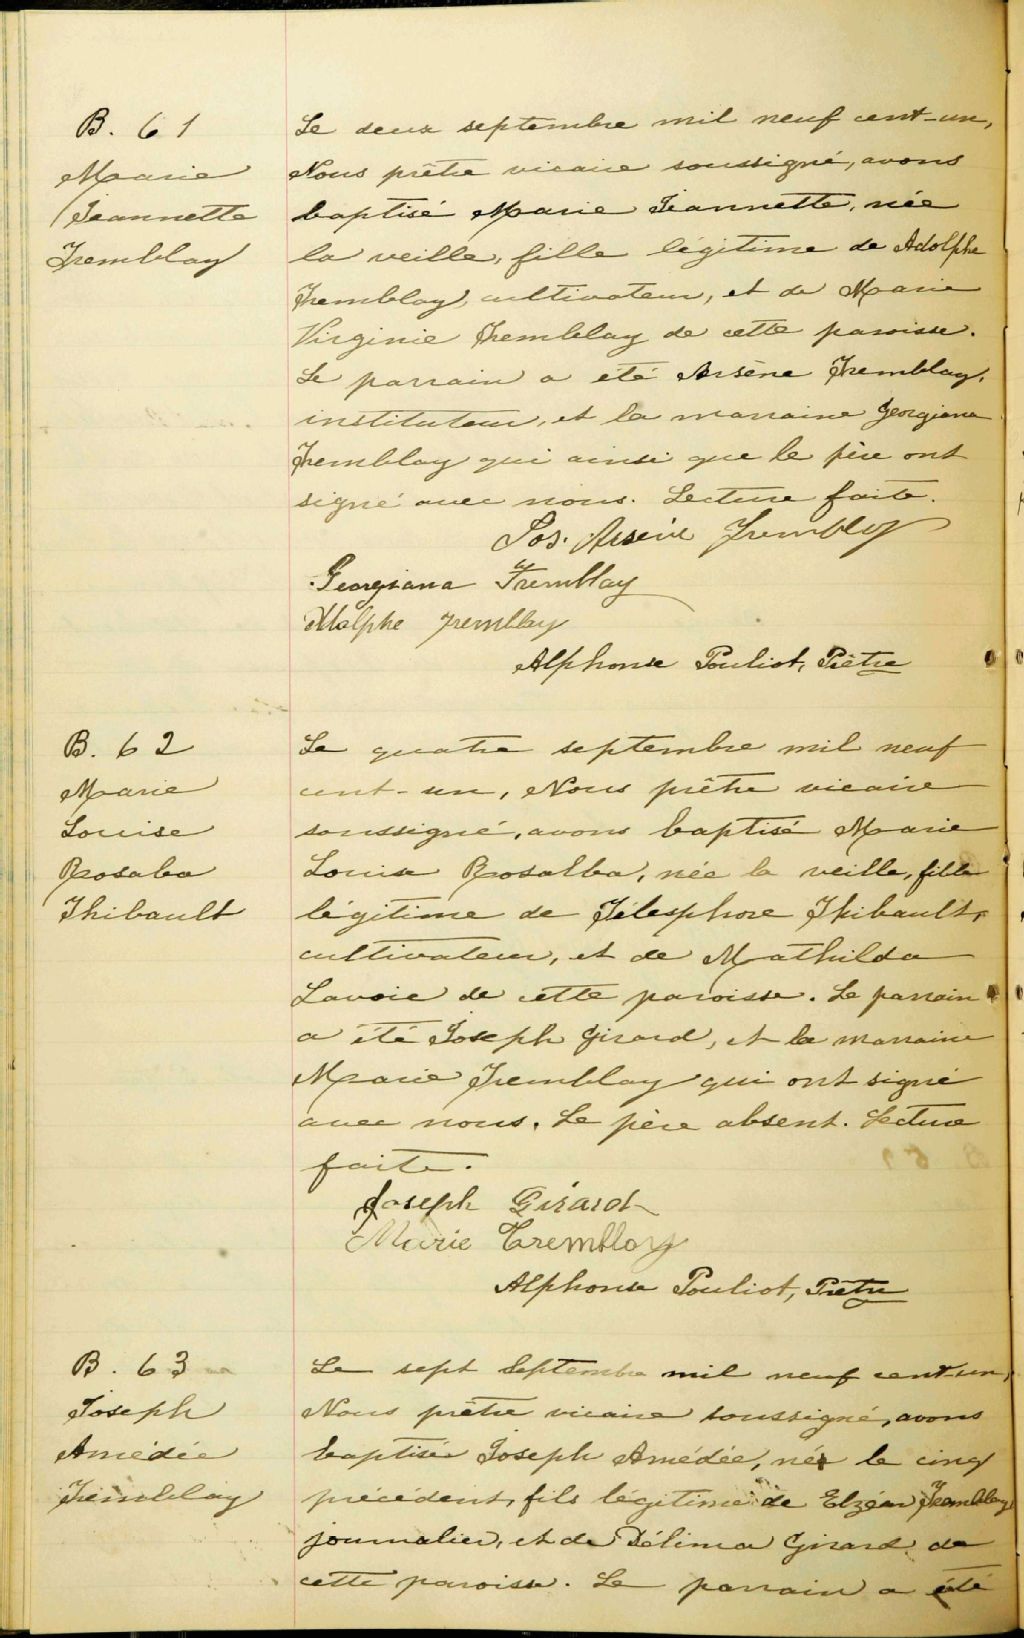 B. 61
Marie
Jeannette
Tremblay
Le deux septembre mil neuf cent-un,
Nous prêtre vicaire soussigné, avons
baptisé Marie Jeannette, née
la veille, fille légitime de Adolphe
Tremblay, cultivateur, et de Marie
Virginie Tremblay de cette paroisse.
Le parrain a été Arsène Tremblay,
instituteur, et la marraine Georgiana
Tremblay qui ainsi que le père ont
signé avec nous. Lecture faite.
Jos. Arsène Tremblay
Georgiana Tremblay
Adolphe Tremblay
Alphonse Pouliot, Prêtre
B. 62
Marie
Louise
Rosalba
Thibault
Le quatre septembre mil neuf
cent-un, Nous prêtre vicaire
soussigné, avons baptisé Marie
Louise Rosalba, née la veille, fille
légitime de Télesphore Thibault,
cultivateur, et de Mathilda
Lavoie de cette paroisse. Le parrain
a été Joseph Girard, et la marraine
Marie Tremblay qui ont signé
avec nous. Le père absent. Lecture
faite.
Joseph Girard
Marie Tremblay
Alphonse Pouliot, Prêtre
B. 63
Joseph
Amédée
Tremblay
Le sept Septembre mil neuf cent-un,
Nous prêtre vicaire soussigné, avons
baptisé Joseph Amédée, né le cinq
précédent, fils légitime de Elzéar Tremblay
journalier, et de Délima Girard de
cette paroisse. Le parrain a été